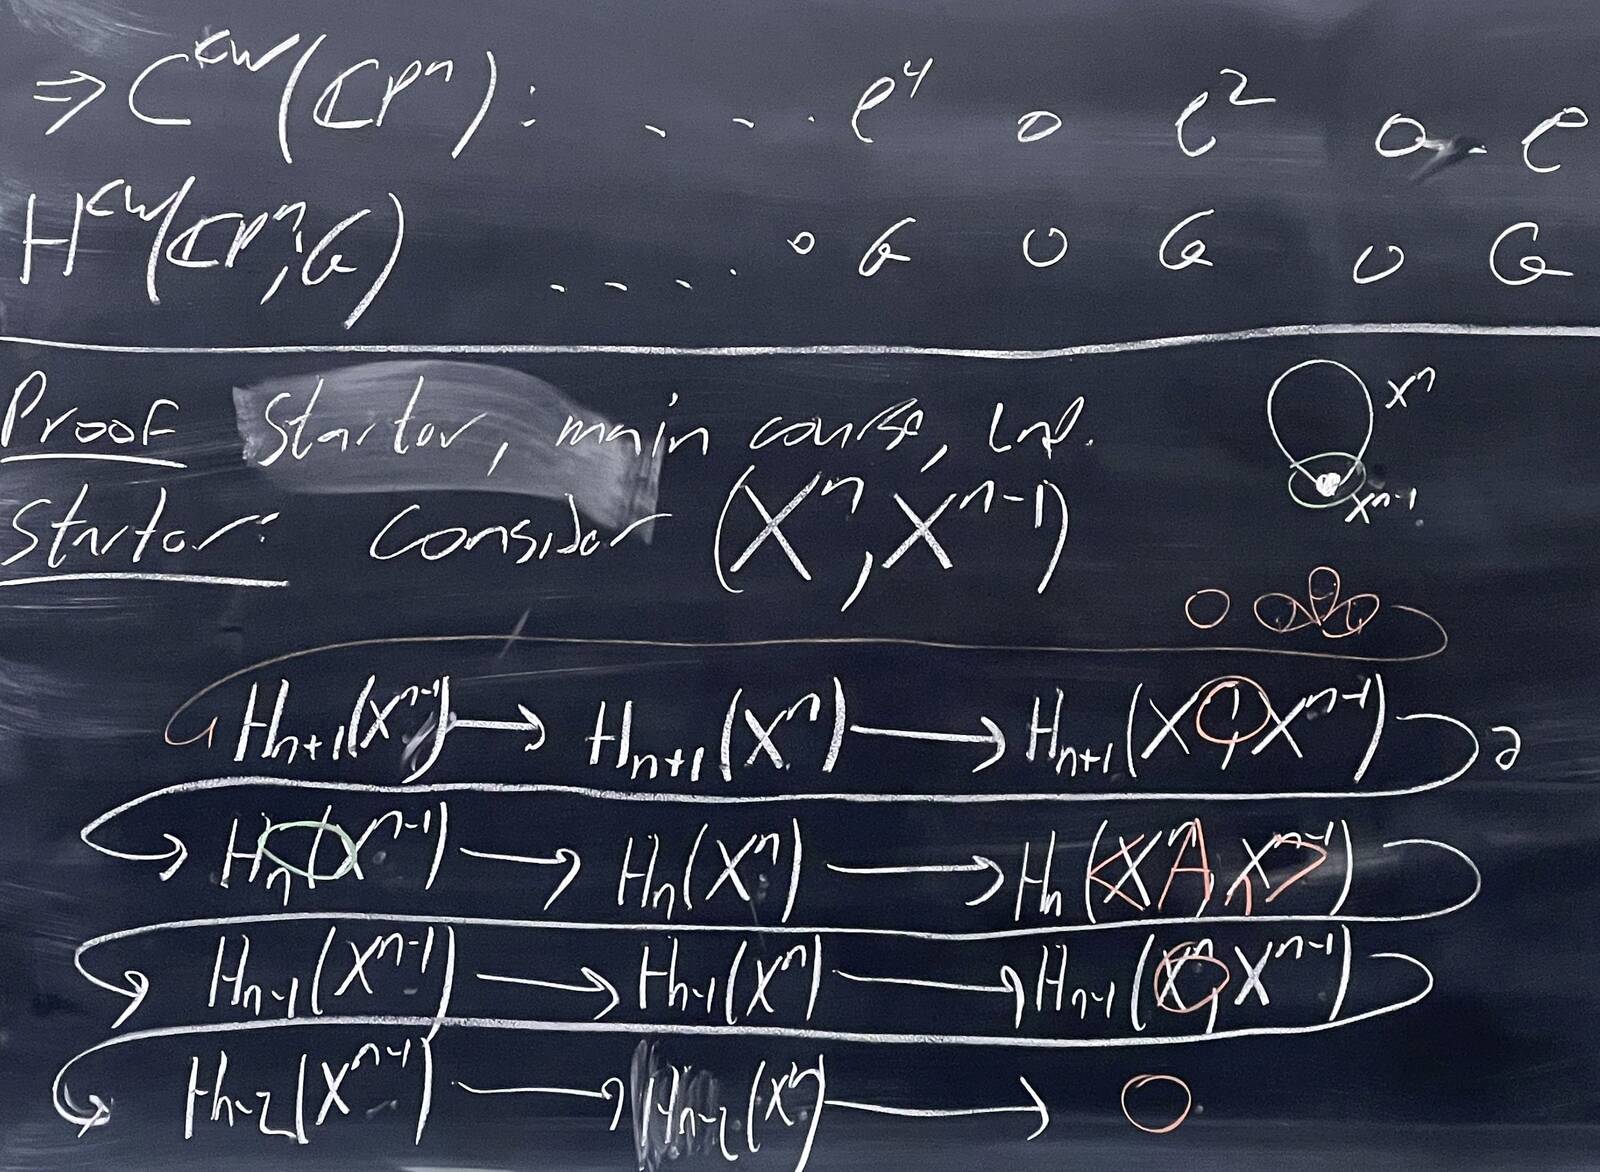 ⇒ C^CW(ℂP^n): . . . . e^4 0 e^2 0 e
H^CW(ℂP^n; G) . . . . . 0 G 0 G 0 G
Proof Starter, main course,
X^n
X^n-1
Starter: Consider (X^n, X^n-1)
0
H_n+1(X^n-1) → H_n+1(X^n) → H_n+1(X^n, X^n-1) ∂
H_n(X^n-1) → H_n(X^n) → H_n(X^n, X^n-1)
H_n-1(X^n-1) → H_n-1(X^n) → H_n-1(X^n, X^n-1)
H_n-2(X^n-1) → H_n-2(X^n) → 0